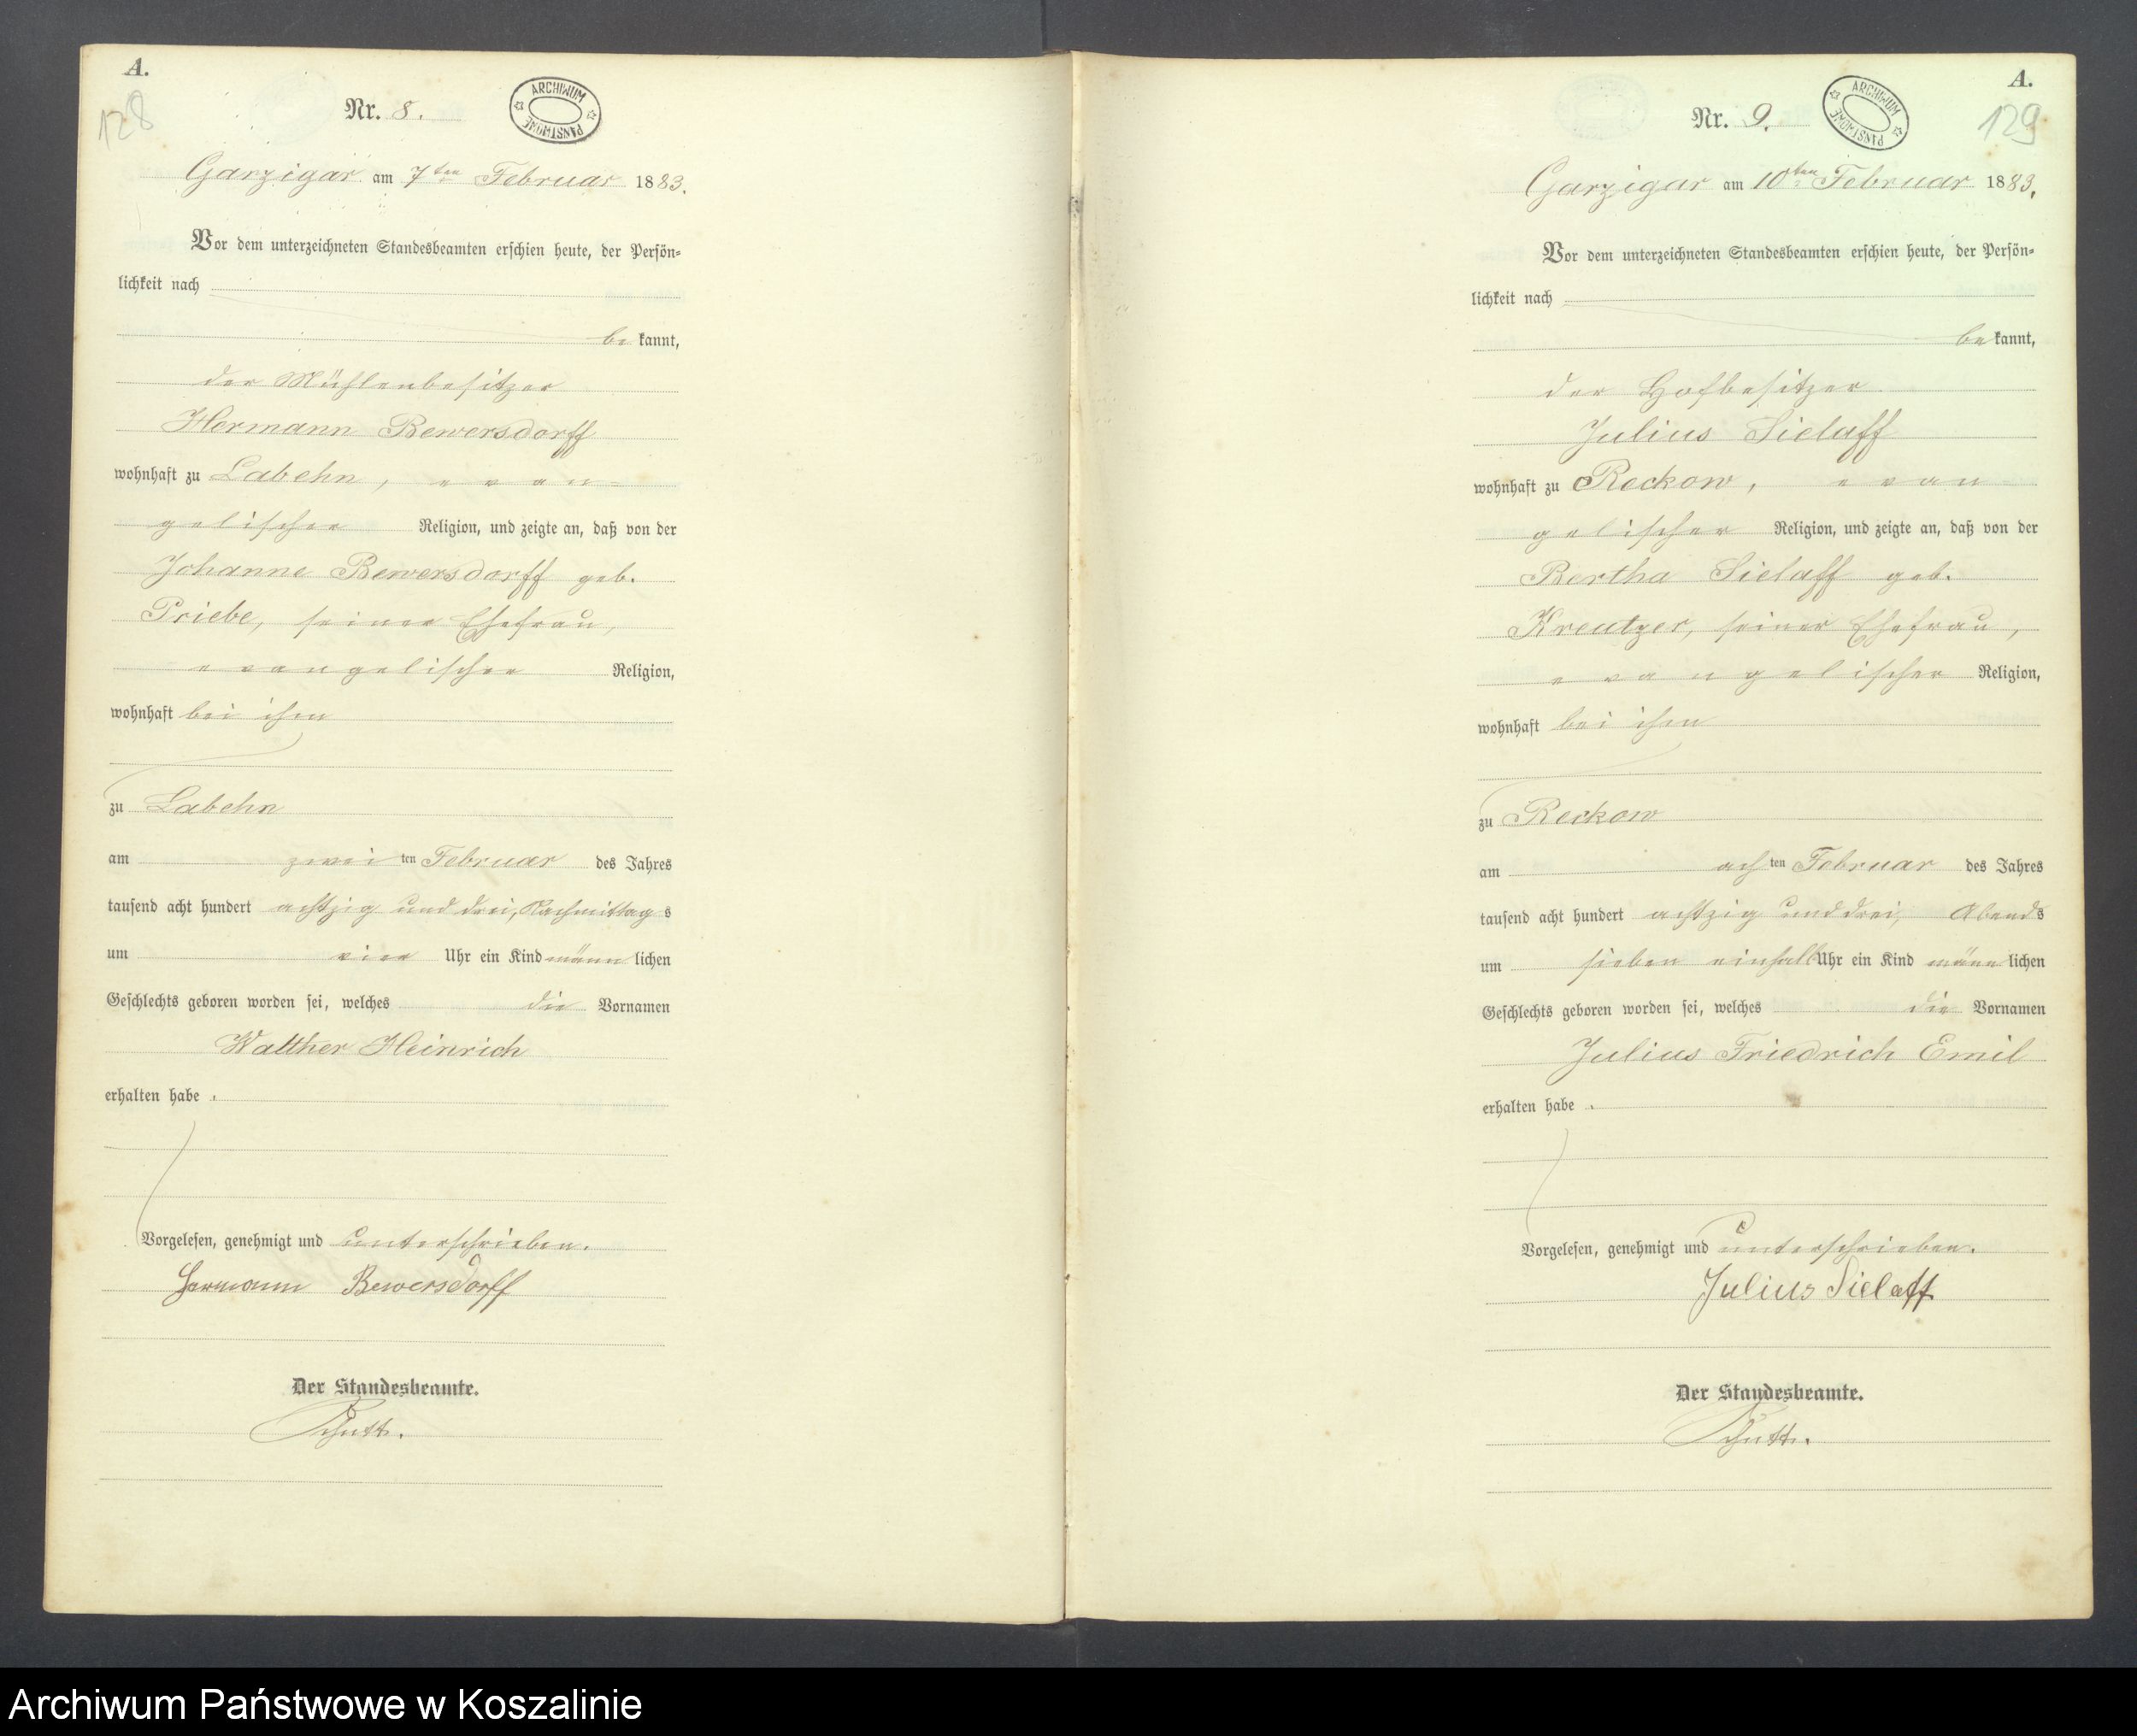 A.
128
Nr. 8.
ARCHIWUM PAŃSTWOWE
Garzigar am 7ten Februar 1883.
Vor dem unterzeichneten Standesbeamten erschien heute, der Persön-
lichkeit nach
bekannt,
der Mühlenbesitzer
Hermann Bewersdorff
wohnhaft zu Labehn, evan-
gelischer Religion, und zeigte an, daß von der
Johanne Bewersdorff geb.
Priebe, seiner Ehefrau,
evangelischer Religion,
wohnhaft bei ihm
zu Labehn
am zweiten Februar des Jahres
tausend acht hundert achtzig und drei, Nachmittags
um vier Uhr ein Kind männlichen
Geschlechts geboren worden sei, welches die Vornamen
Walther Heinrich
erhalten habe.
Vorgelesen, genehmigt und unterschrieben.
Hermann Bewersdorff
Der Standesbeamte.
A.
129
Nr. 9.
ARCHIWUM PAŃSTWOWE
Garzigar am 10ten Februar 1883.
Vor dem unterzeichneten Standesbeamten erschien heute, der Persön-
lichkeit nach
bekannt,
der Hofbesitzer
Julius Sielaff
wohnhaft zu Reckow, evan
gelischer Religion, und zeigte an, daß von der
Bertha Sielaff geb.
Kreutzer, seiner Ehefrau,
evangelischer Religion,
wohnhaft bei ihm
zu Reckow
am achten Februar des Jahres
tausend acht hundert achtzig und drei, Abends
um sieben einhalb Uhr ein Kind männlichen
Geschlechts geboren worden sei, welches die Vornamen
Julius Friedrich Emil
erhalten habe.
Vorgelesen, genehmigt und unterschrieben.
Julius Sielaff
Der Standesbeamte.
Archiwum Państwowe w Koszalinie